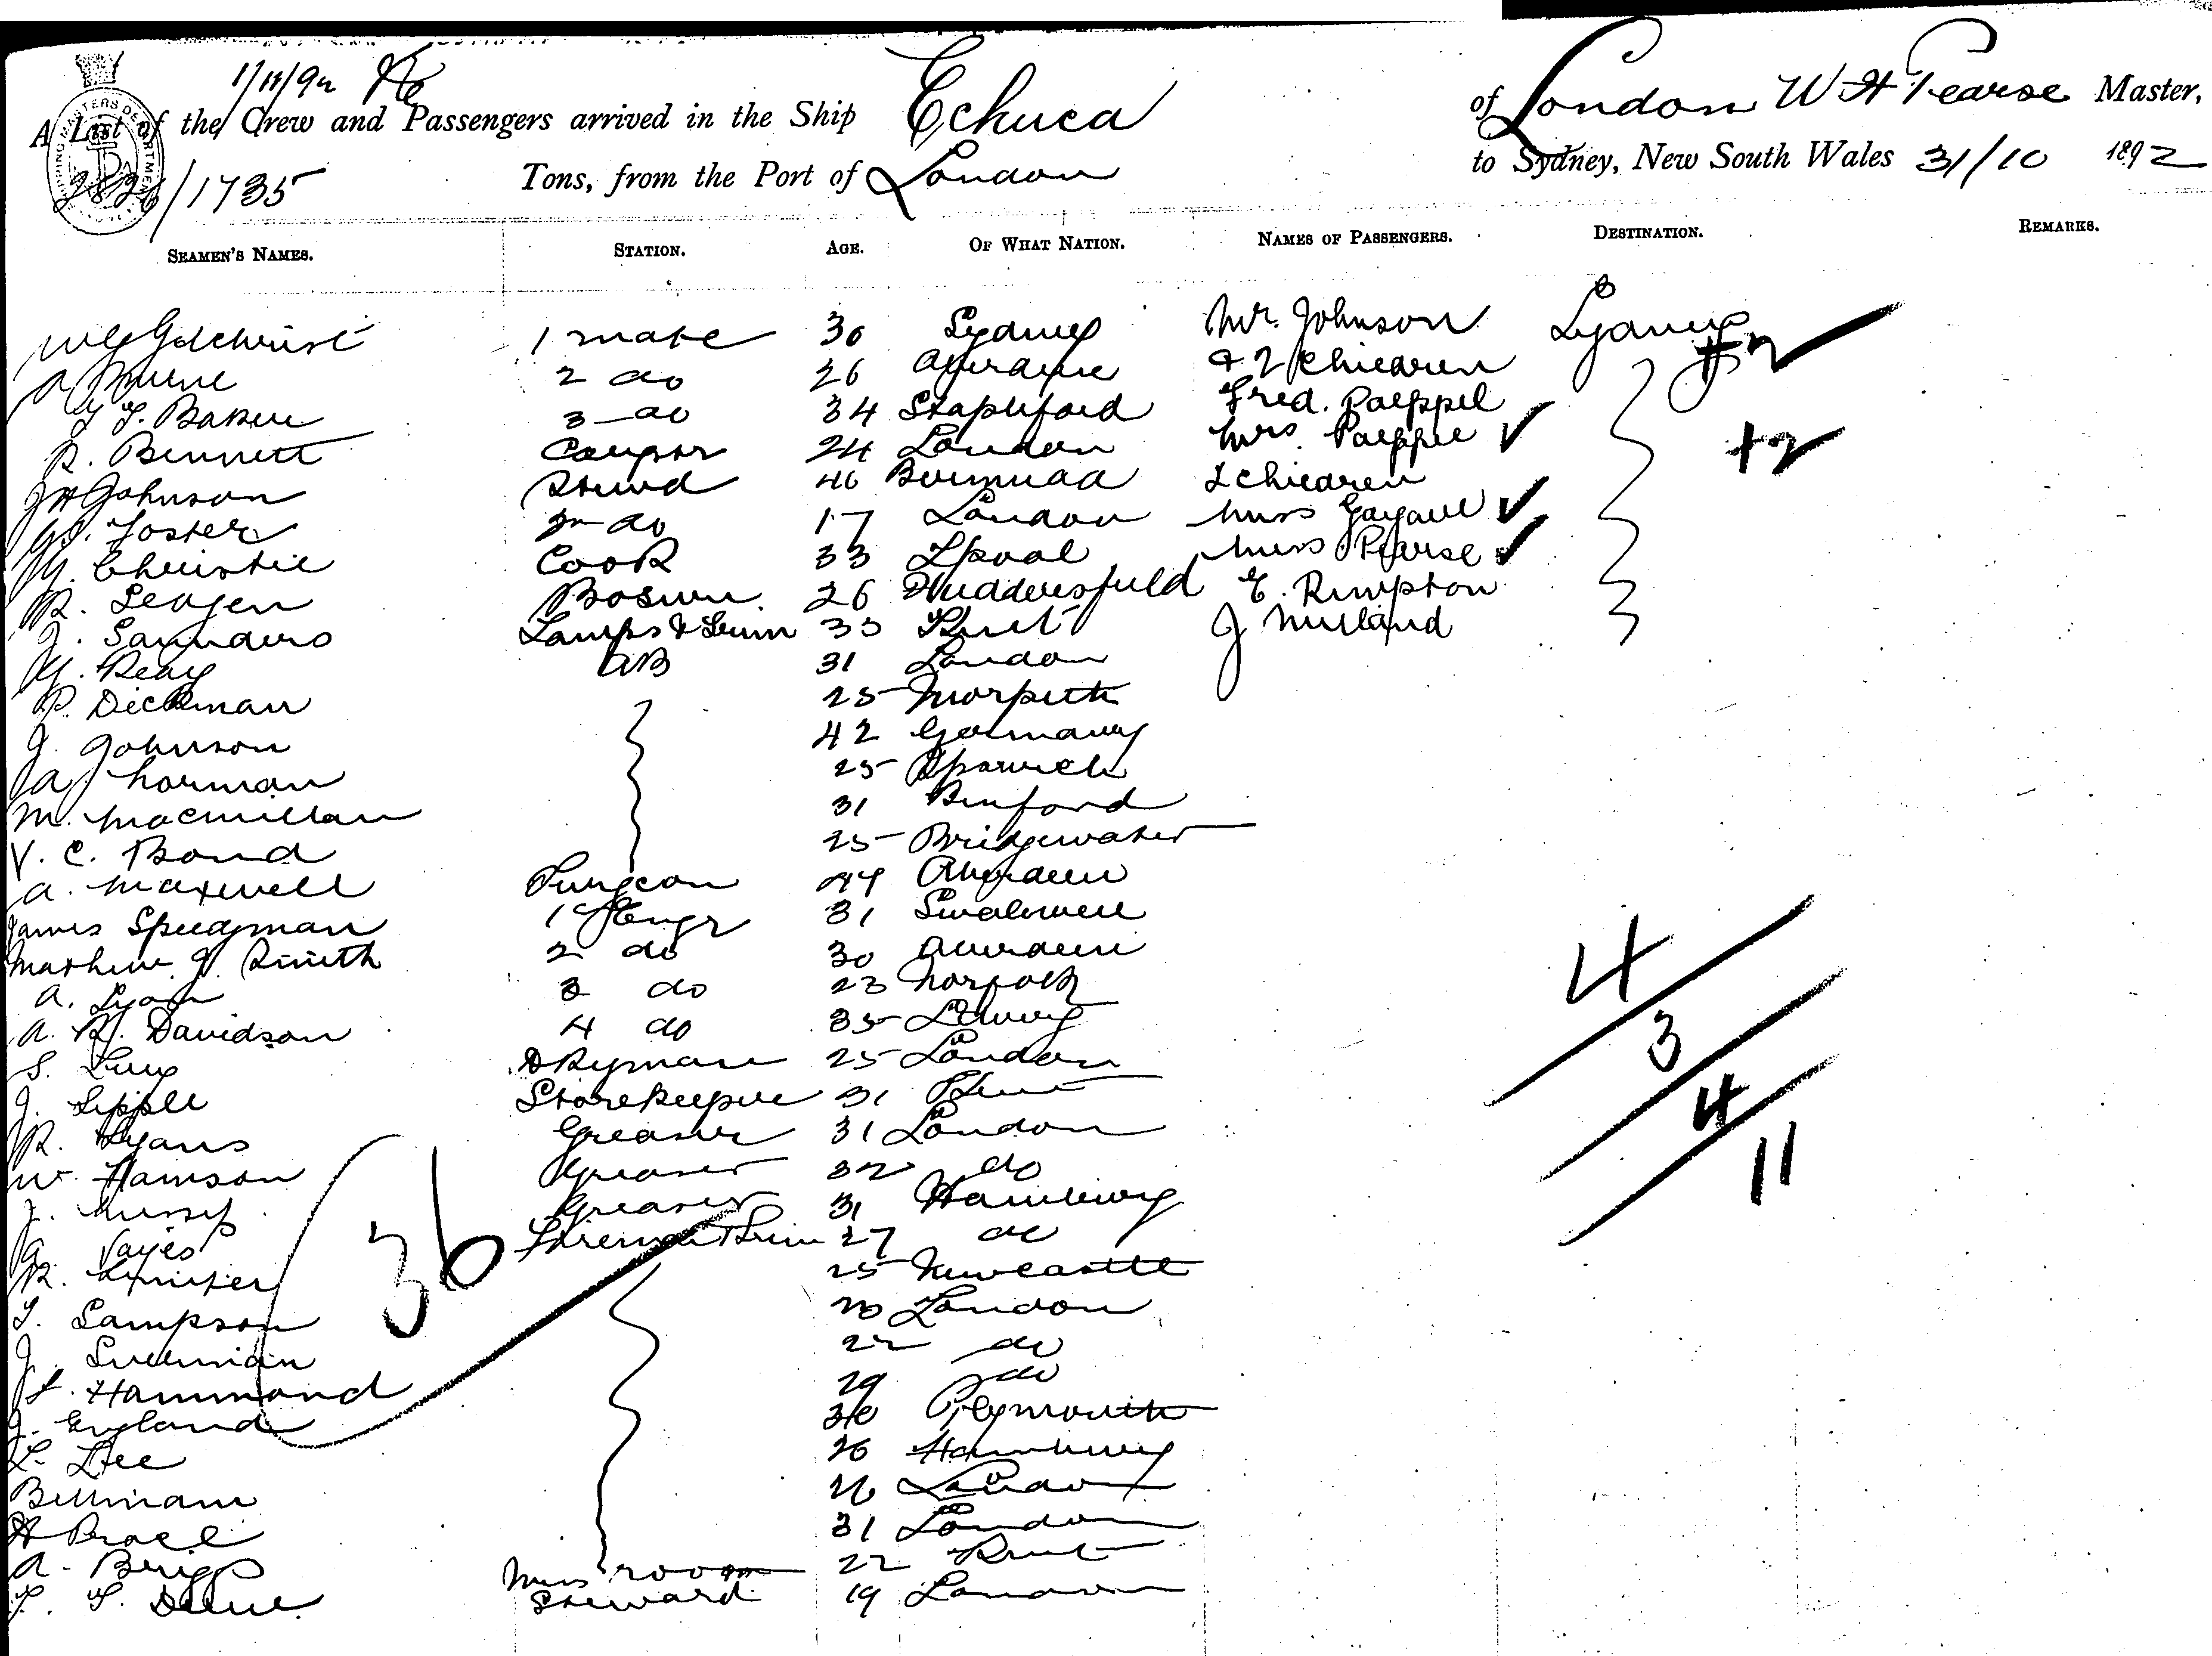 1/11/92
A List of the Crew and Passengers arrived in the Ship Echuca of London W H Pearse Master,
2826/1735 Tons, from the Port of London to Sydney, New South Wales 31/10 1892
SEAMEN'S NAMES. STATION. AGE. OF WHAT NATION. NAMES OF PASSENGERS. DESTINATION. REMARKS.
W G Gilchrist 1 mate 30 Sydney Mr. Johnson Sydney
A Milne 2 do 26 Aberdeen & 2 Children +2
G. F. Baker 3 do 34 Stapleford Fred. Paeppel
R. Bennett 24 London Mrs. Paeppel +2
J H Johnson Steward 46 Bermuda 2 Children
W. Foster 2nd do 17 London Miss
W. Christie Cook 33 Lpool Miss Pearse
R. Bosun. 26 Huddersfield E. Rimpton
J. Saunders Lamps & Trim 33 Kent J
W. Reay AB 31 London
P. Dickman 25 Morpeth
J. Johnson 42 Germany
A J Norman 25 Ipswich
M. Macmillan 31
V. C. Bond 25 Bridgewater
A. Maxwell Surgeon 44 Aberdeen
James Speedman 1st Engr 31 Swalwell
Mathew J. Smith 2 do 30 Aberdeen
A. Lyon 3 do 23 Norfolk
A. R. Davidson 4 do 35
S. Dkyman 25 London
J. Sipple Storekeeper 31 Kent
R. Lyans Greaser 31 London
W. Greaser 32 do
J. Greaser 31 Hamburg
A. Fireman Trim 27 do
R. 25 Newcastle
T. Sampson 20 London
J. 22 do
F. Hammond 29 do
J. England Plymouth
L. Lee 26 Hamburg
Bellmann 26 London
H 31 London
A. Briggs 22 Kent
F. S. Mess room Steward 19 London
36
4
3
4
11